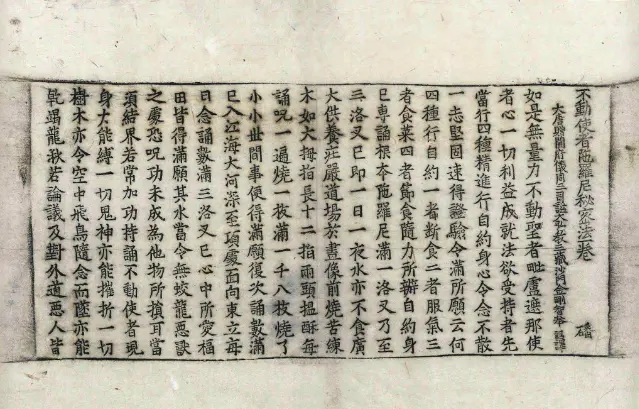 不動使者陁羅尼秘密法一卷 磻
大唐贈開府儀同三司諡大弘教三藏沙門金剛智奉 詔譯
如是無量力不動聖者毗盧遮那使
者心一切利益成就法欲受持者先
當行四種精進行自約身心令念不散
一志堅固速得證驗令滿所願云何
四種行自約一者斷食二者服氣三
者食菜四者節食隨力所辦自約身
已專誦根本陁羅尼滿一洛叉乃至
三洛叉已即一日一夜水亦不食廣
大供養莊嚴道場於畫像前燒苦練
木如大拇指長十二指兩頭搵酥每
誦呪一遍燒一枚滿一千八枚燒了
小小世間事便得滿願復次誦數滿
已入江海大河深至項處面向東立每
日念誦數滿三洛叉已心中所愛福
田皆得滿願其水當令無蛟龍惡獸
之處恐呪功未成為他物所損耳當
須結界若常加功持誦不動使者現
身大能縛一切鬼神亦能摧折一切
樹木亦令空中飛鳥隨念而墜亦能
乾竭龍湫若論議及對外道惡人皆